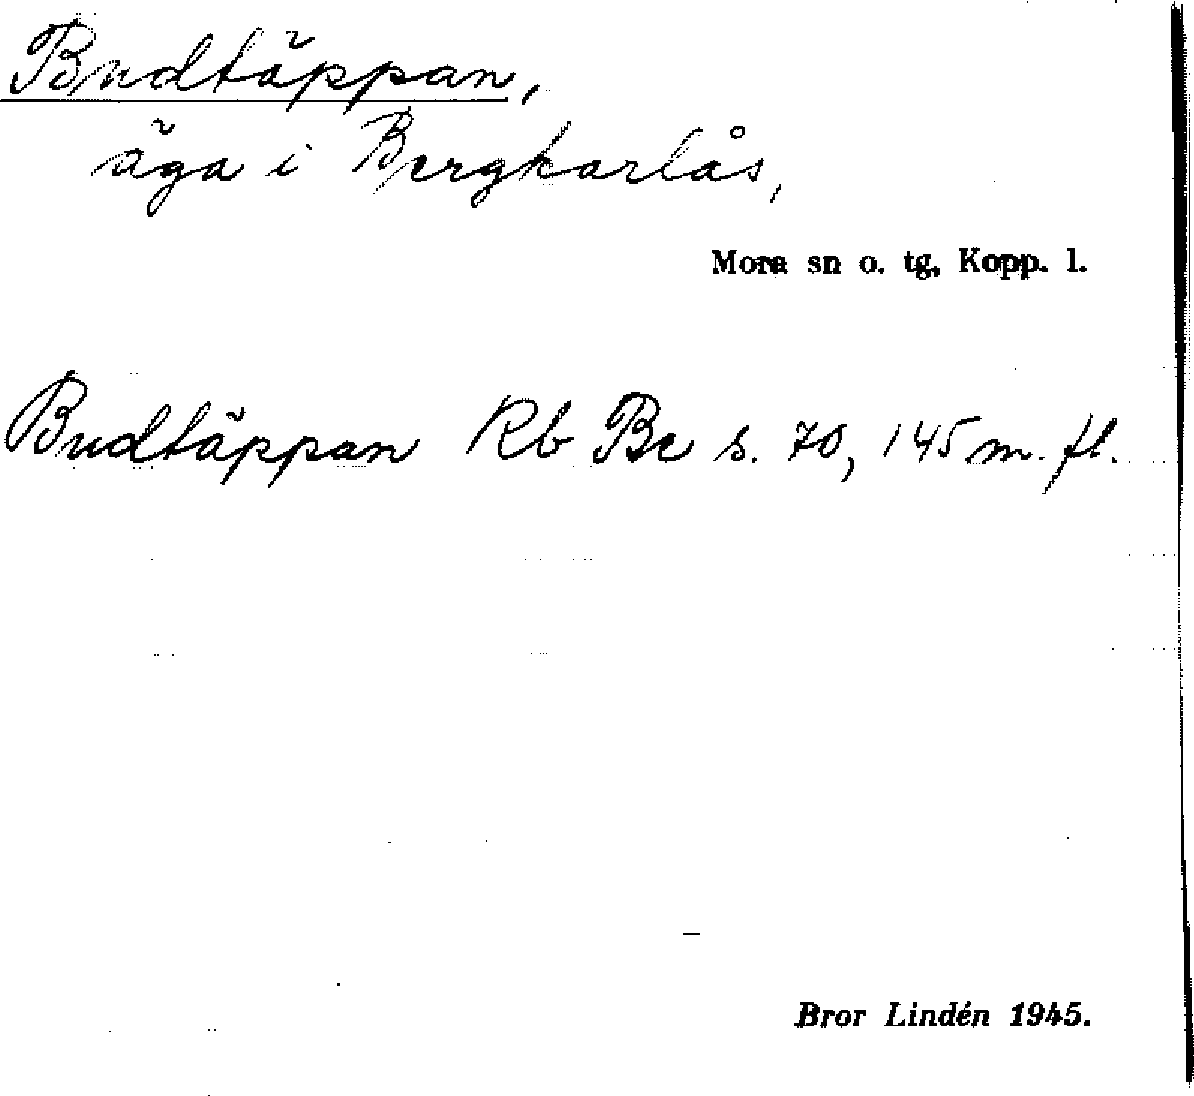 Budtäppan,
äga i Bergkarlås,
Mora sn o. tg, Kopp. l.
Budtäppan Rb Be s. 70, 145 m. fl.
Bror Lindén 1945.